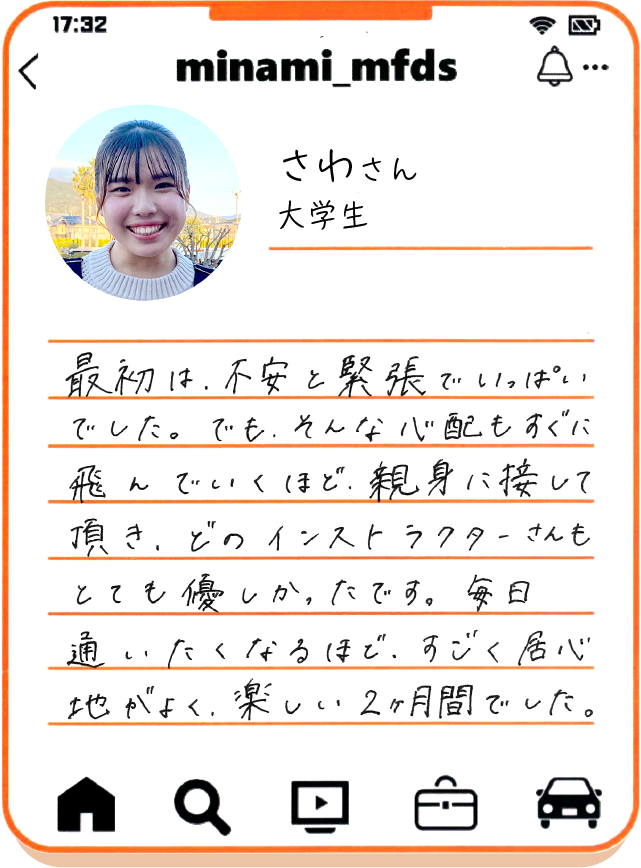 17:32
minami_mfds
さわさん
大学生
最初は、不安と緊張でいっぱい
でした。でも、そんな心配もすぐに
飛んでいくほど、親身に接して
頂き、どのインストラクターさんも
とても優しかったです。毎日
通いたくなるほど、すごく居心
地がよく、楽しい2ヶ月間でした。